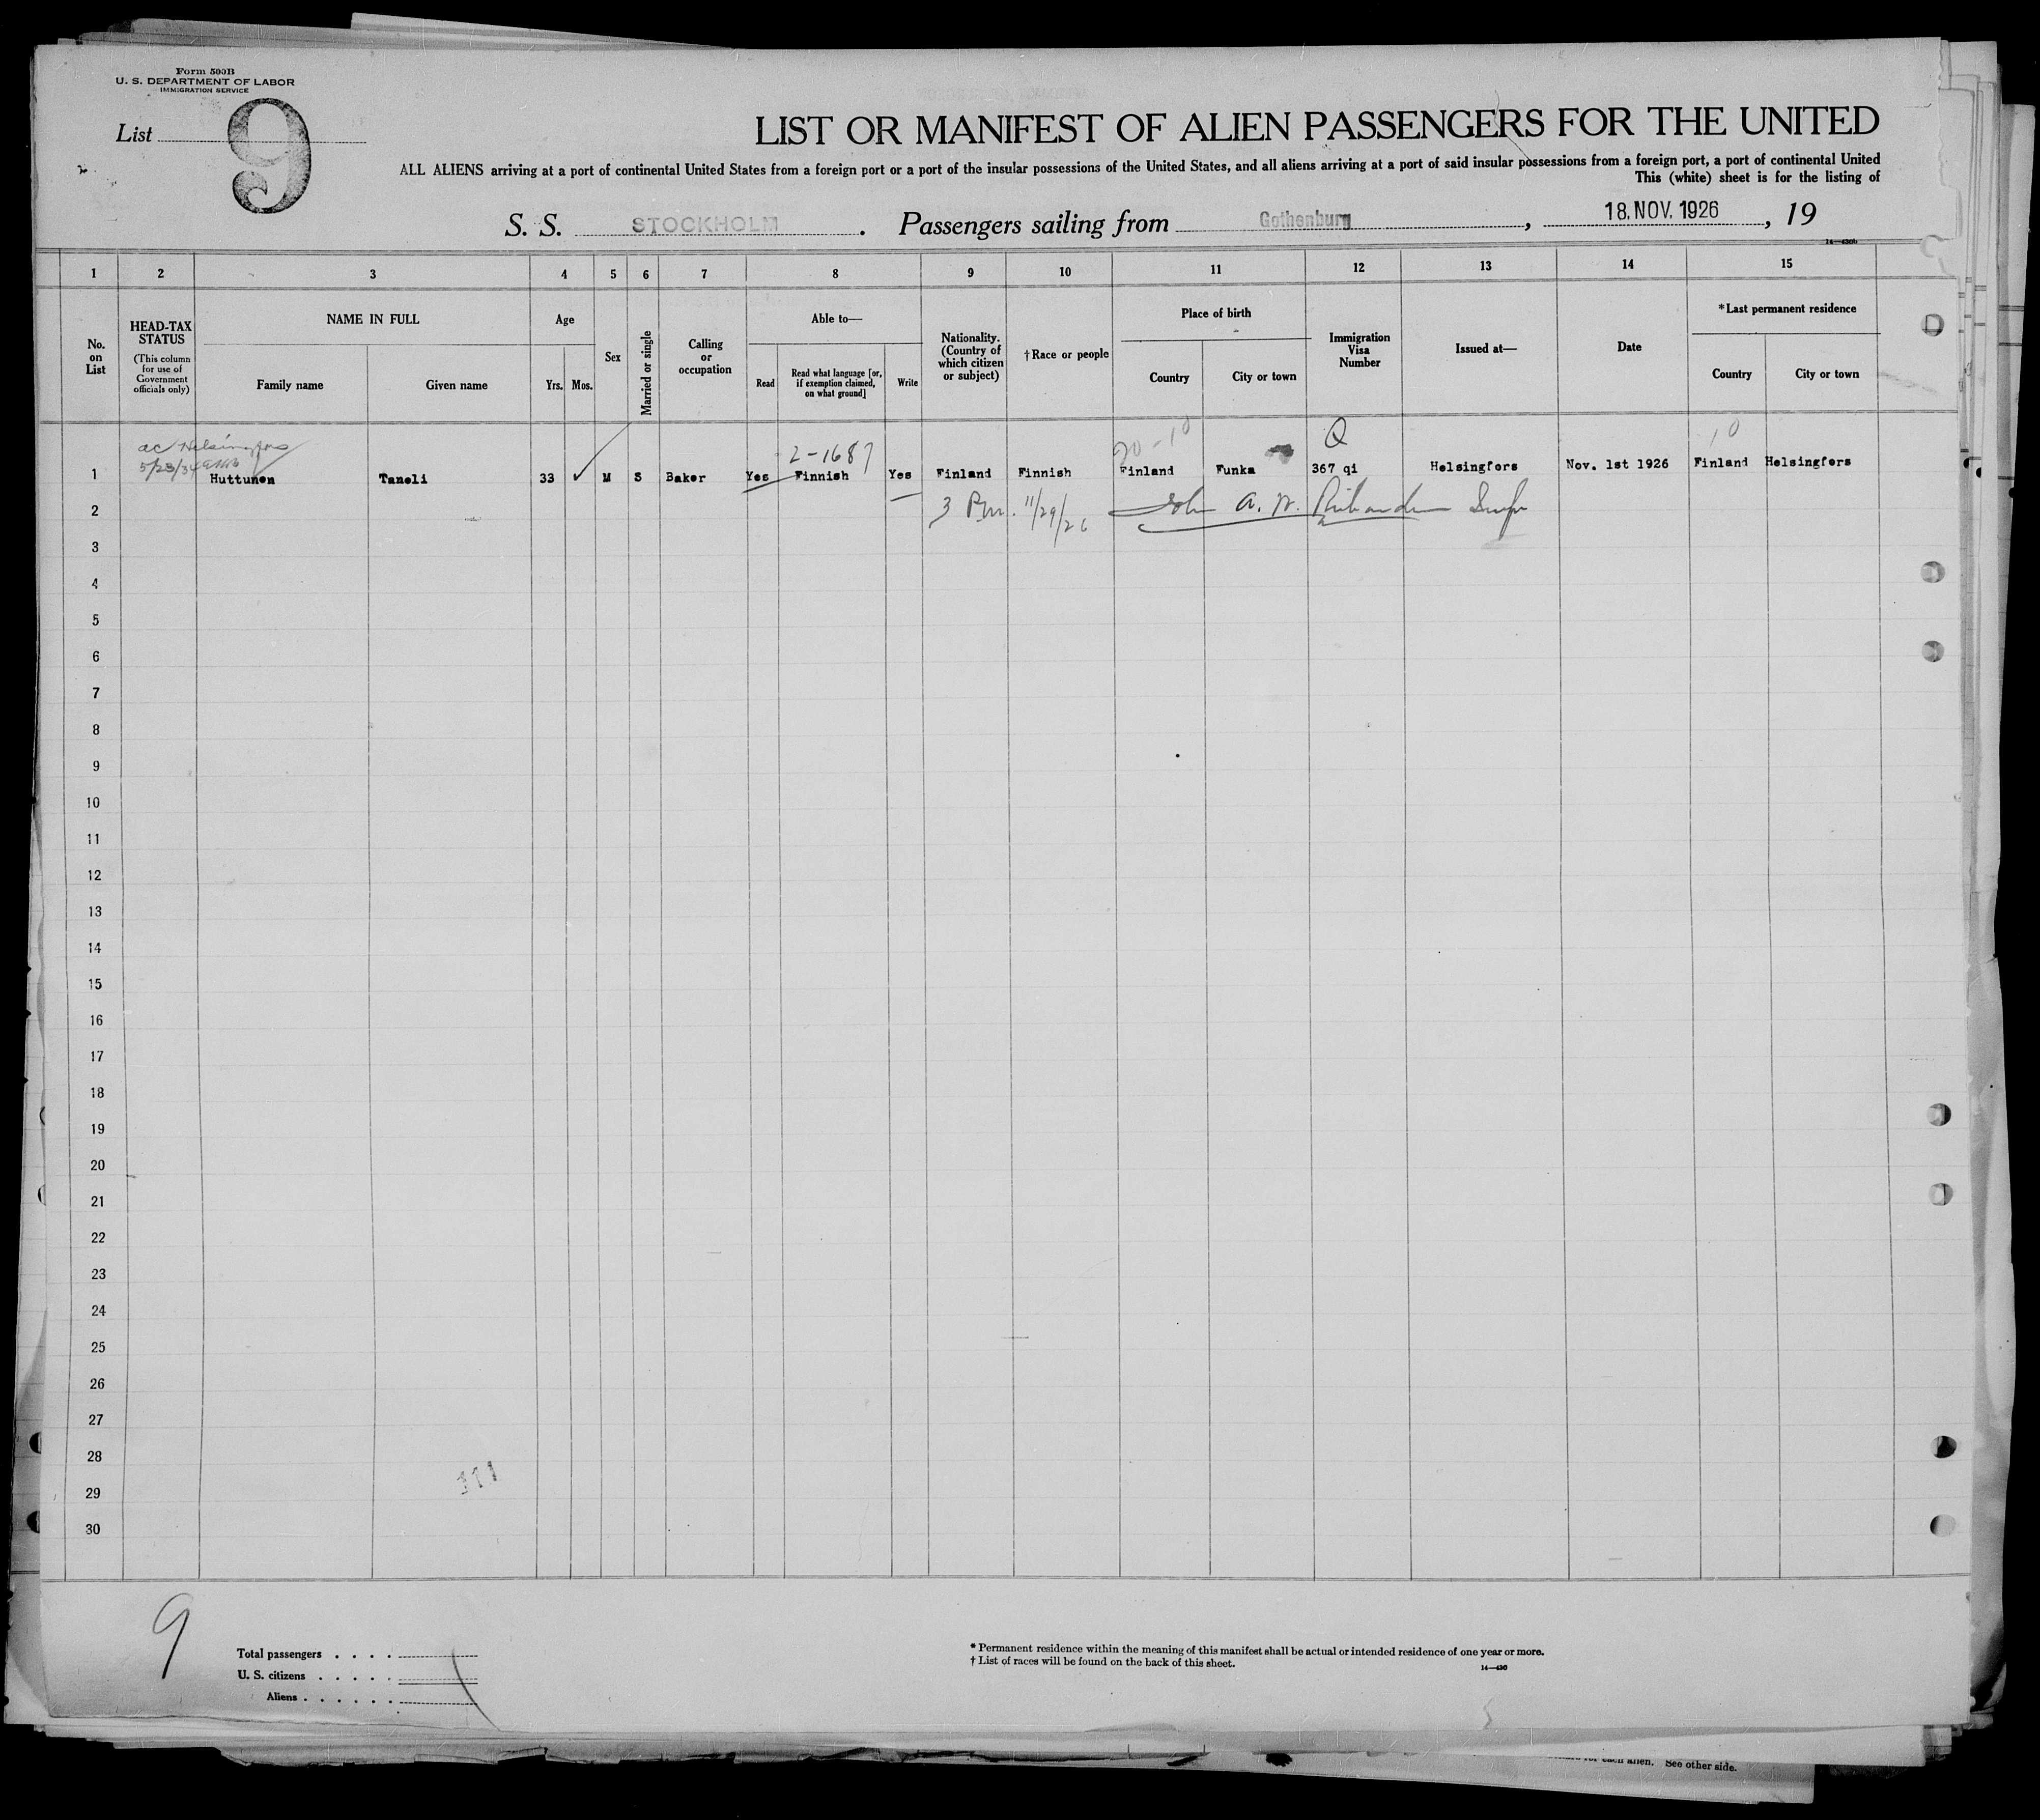 Form 500B
U. S. DEPARTMENT OF LABOR
IMMIGRATION SERVICE
List 9
LIST OR MANIFEST OF ALIEN PASSENGERS FOR THE UNITED
ALL ALIENS arriving at a port of continental United States from a foreign port or a port of the insular possessions of the United States, and all aliens arriving at a port of said insular possessions from a foreign port, a port of continental United
This (white) sheet is for the listing of
S. S. STOCKHOLM . Passengers sailing from Gothenburg , 18. NOV. 1926 , 19
1 2 3 4 5 6 7 8 9 10 11 12 13 14 15
No. on List
HEAD-TAX STATUS
(This column for use of Government officials only)
NAME IN FULL
Family name
Given name
Age
Yrs. Mos.
Sex
Married or single
Calling or occupation
Able to—
Read
Read what language [or, if exemption claimed, on what ground]
Write
Nationality. (Country of which citizen or subject)
† Race or people
Place of birth
Country
City or town
Immigration Visa Number
Issued at—
Date
*Last permanent residence
Country
City or town
ac Helsingfors
5/23/34
2-1687
20-10
Q
10
1 Huttunen Taneli 33 ✓ M S Baker Yes Finnish Yes Finland Finnish Finland Funka 367 qi Helsingfors Nov. 1st 1926 Finland Helsingfors
2 3 Pm. 11/29/26 John A. W. Richardson Insp
3
4
5
6
7
8
9
10
11
12
13
14
15
16
17
18
19
20
21
22
23
24
25
26
27
28
29
30
9
Total passengers . . . .
U. S. citizens . . . . .
Aliens . . . . . .
* Permanent residence within the meaning of this manifest shall be actual or intended residence of one year or more.
† List of races will be found on the back of this sheet.
14—430
each alien. See other side.